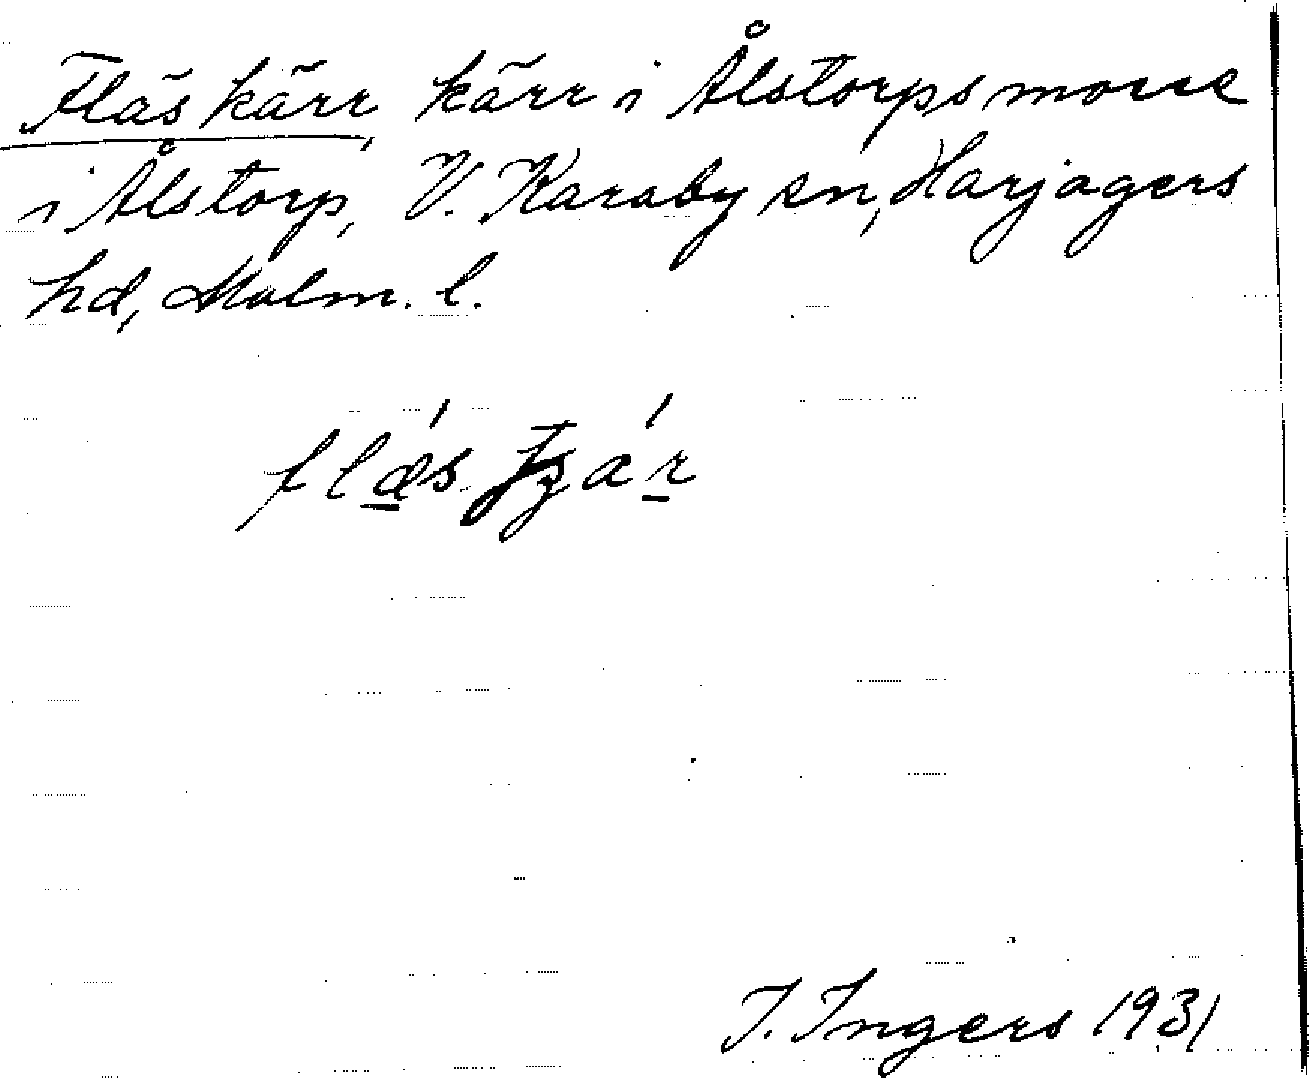 Fläskärr, kärr i Ålstorps mosse
i Ålstorp, V. Karaby sn, Harjagers
hd, Malm. l.
flǽ̠s
I. Ingers 1931